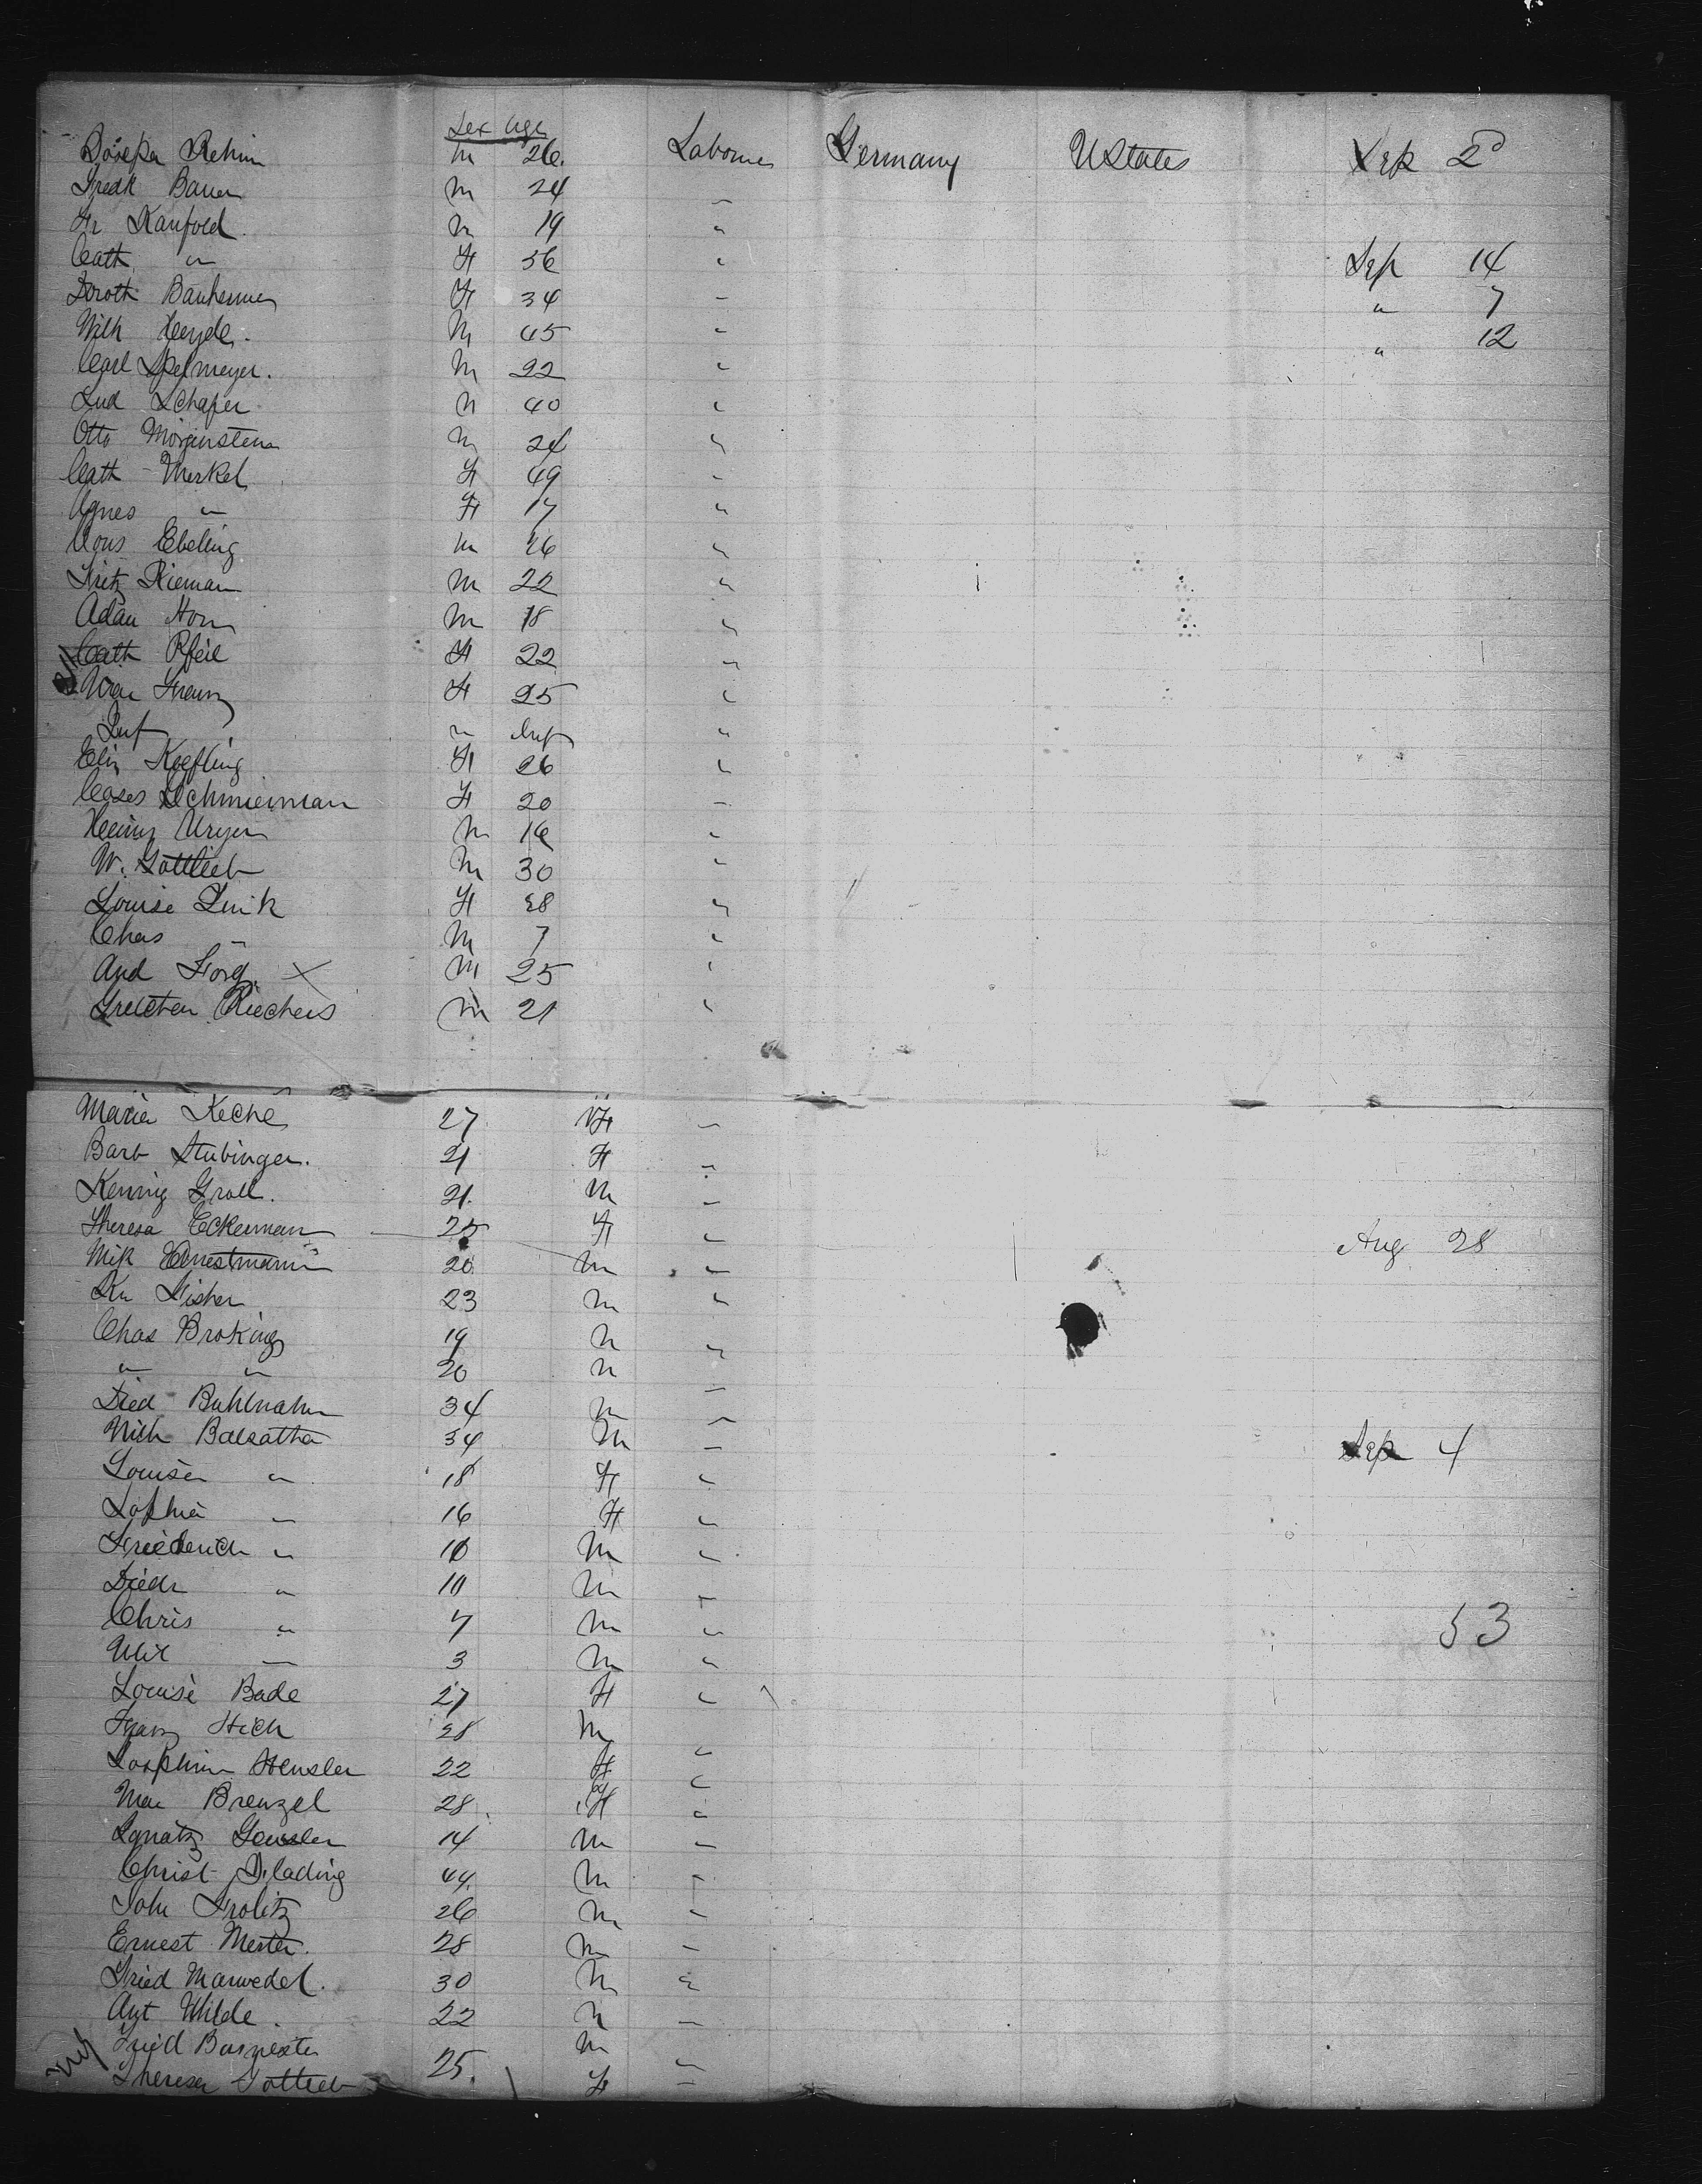 Sex Age
Josepha Rehm m 26. Laborer Germany UStates Sep 2d
Fredk Bauer m 24 "
Fr Kaufold m 19 "
Cath " F 56 " Sep 14
Doroth F 34 " " 7
Wilh Heyde. M 45 " " 12
Carl Spelmeyer. M 22 "
Lud Schafer M 40 "
Otto Morgenstern M 24 "
Cath Merkel F 49 "
Agnes " F 17 "
Ebeling m 26 "
Fritz Rieman M 22 "
Adam Horn M 18 "
Cath Pfeil F 22 "
Franz F 25 "
Inf " Inf "
Eliz Koefling F 26 "
F 20 "
Meyer M 16 "
W. Gottlieb M 30 "
Louise Funk F 28 "
Chas " M 7 "
And Forg. X M 25 "
Gretchen Riechers M 21 "
Maria Keche 27 F "
Barb Stubinger. 21 F "
Grall. 21. M "
Theresa Eckerman 25 F " Aug 28
Ernestmann 20 M "
Fisher 23 M "
Chas Broking 19 M "
" " 20 M "
Died 34 M "
Balsatha 34 M " Sep 4
Louisa " 18 F "
Sophia " 16 F "
Friederich " 10 M "
Diedr " 10 M "
Chris " 7 M " 53
" 3 M "
Louise Bade 27 F "
Franz Hich 28 M "
Josephine Hensler 22 F "
Mar Brenzel 28 F "
Ignatz 14 M "
Christ 44 M "
John Frolitz 26 M "
Ernest Mester. 28 M "
Fried Marwedel. 30 M "
Agt Wilde. 22 M "
Fried M "
Theresa Gottlieb 25. F "